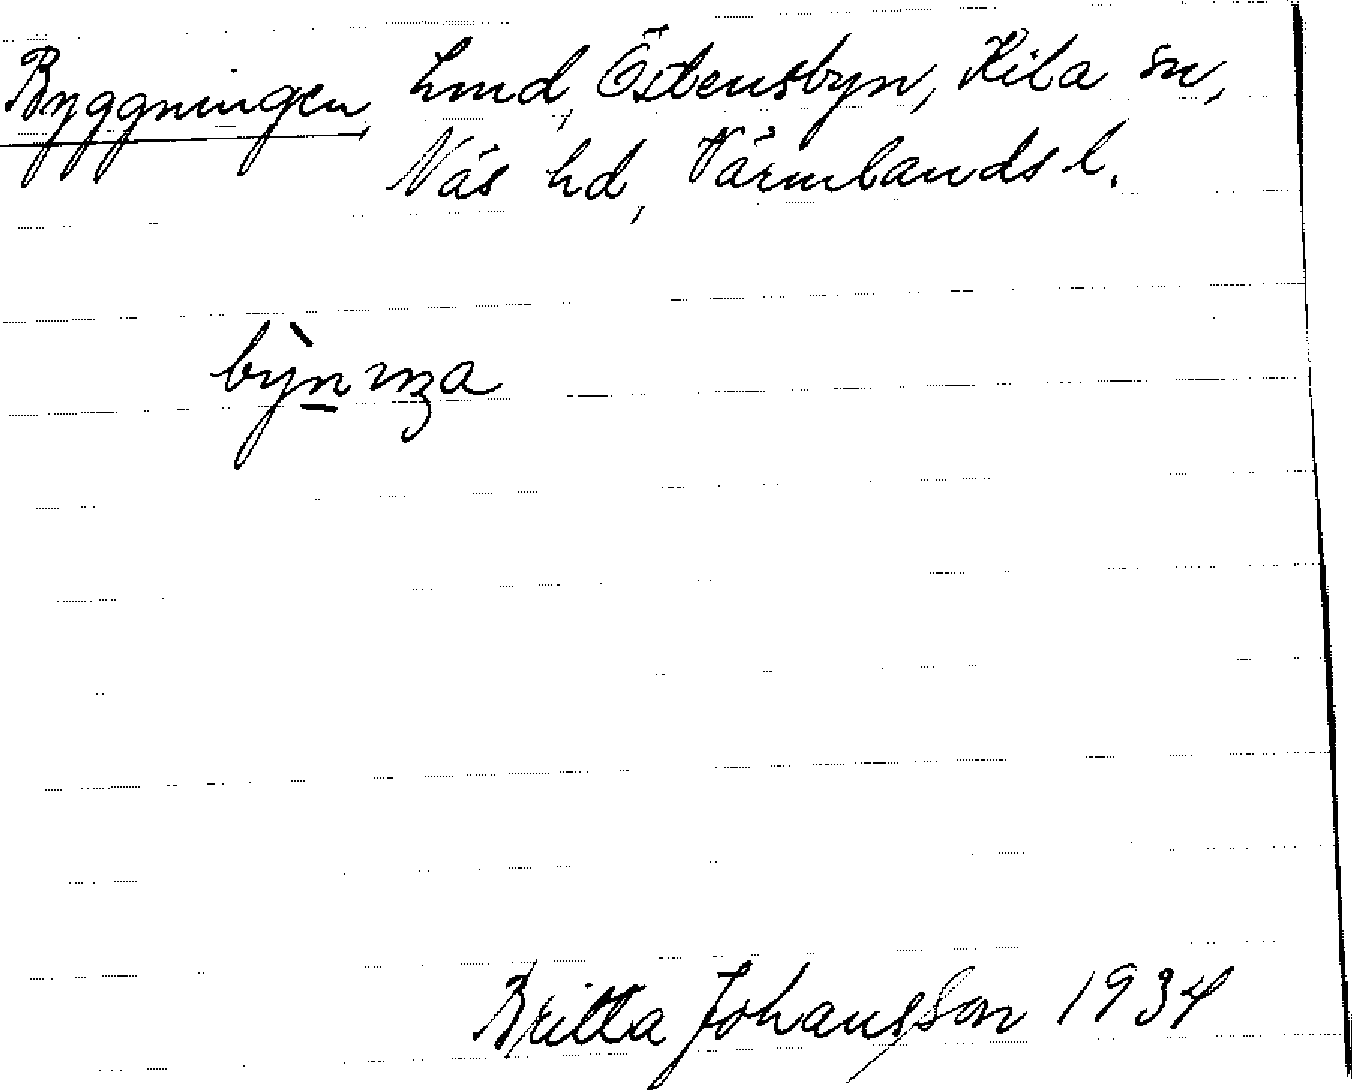 Byggningen, hmd, Östensbyn, Kila sn,
Näs hd, Värmlands l.
Britta Johansson 1934